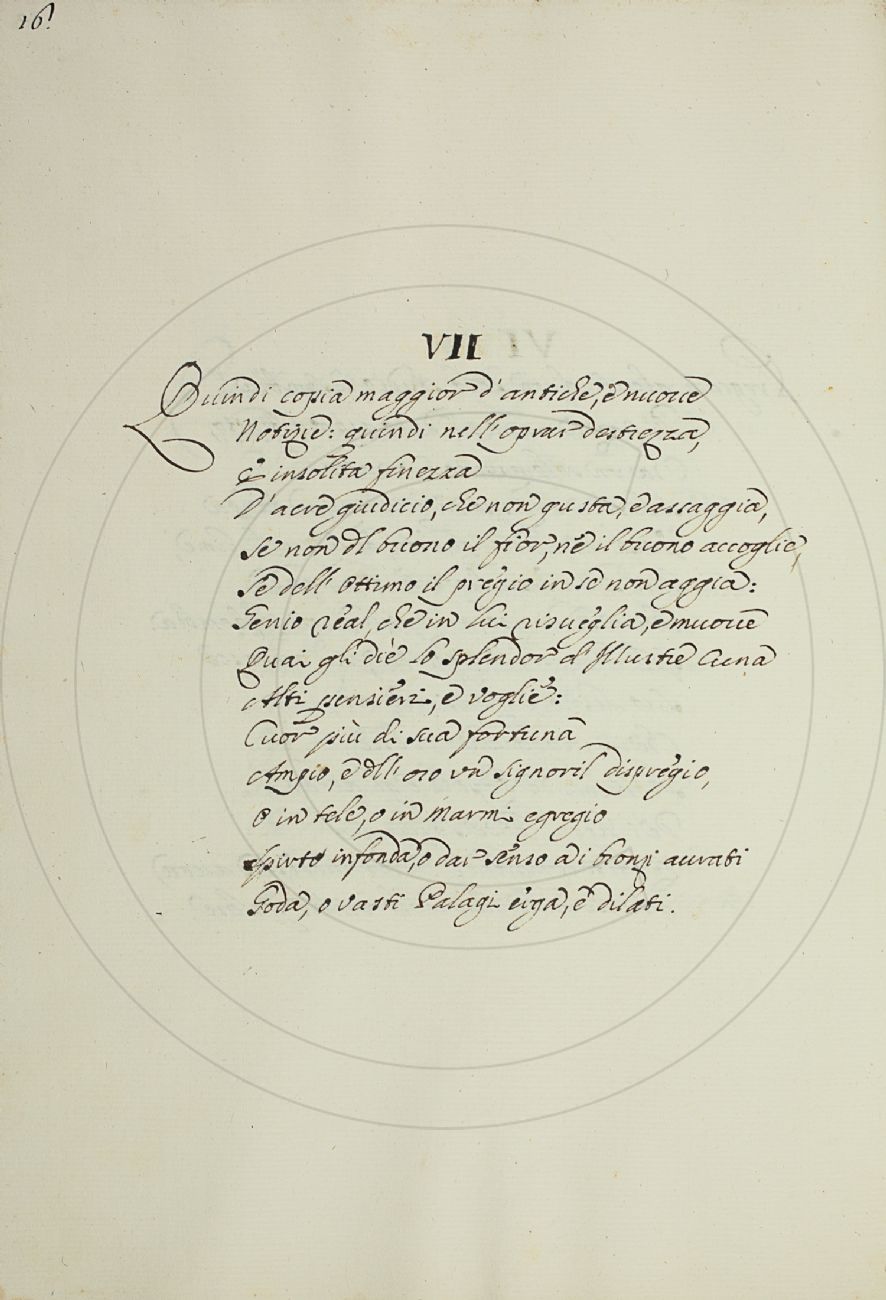 16.
VII
Quindi copia maggior d'antiche, e nuove
Notizie: quindi nell'oprar destrezza,
E insolita finezza
D'acre giudicio, che non gusta, e assaggia,
Se non dl buono il fior, né il buono accoglie,
Se dell'ottimo il pregio in se non aggia:
Genio real, che in lui risueglia, e muove
Quai gli diè lo splendor d'Illustre Cuna
Alti pensieri, e voglie:
Cuor più di sua fortuna
Ampio, e dll'oro vn signoril dispregio,
O in tele, o in Marmi egregio
Spirto infonda, o dar senso a i bronzi aurati
Goda, o vasti Palagi erga, e dilati.